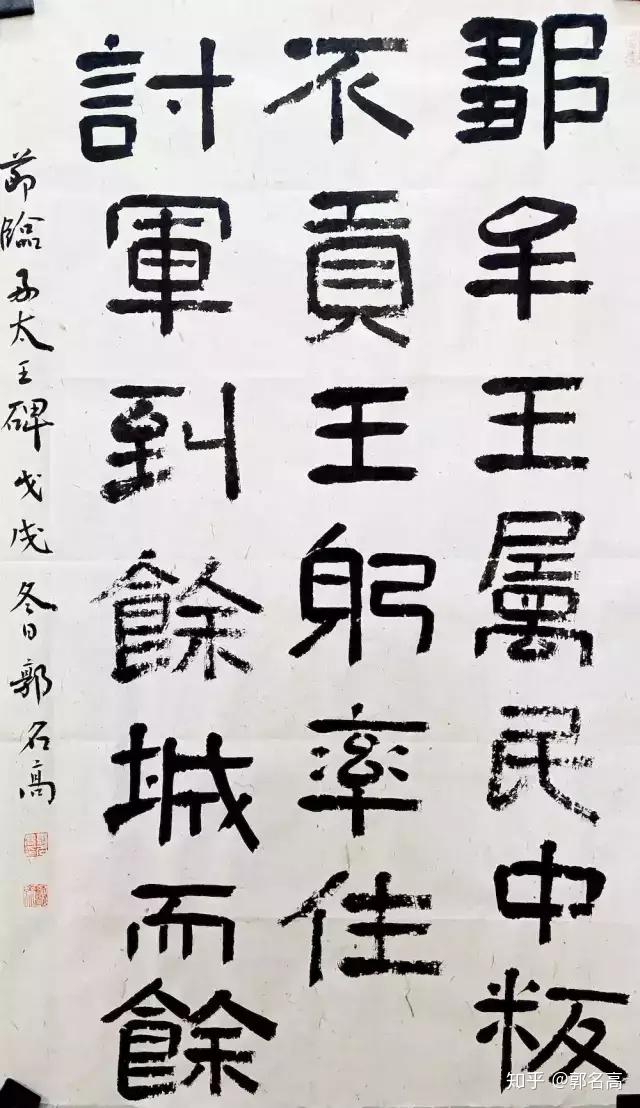 鄒牟王屬民中粄
不貢王躬率住
討軍到餘城而餘
莭臨好太王碑 戊戌冬日郭名高
知乎 @郭名高